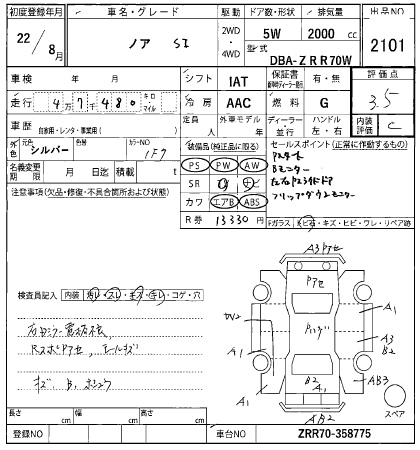 初度登録年月
車名・グレード
駆動
ドア数・形状
排気量
出品NO
22/8月
ノア SI
2WD・4WD
5W
2000 cc
型式
DBA-ZRR70W
2101
車検 年 月
シフト
IAT
保証書
有・無
評価点
3.5
走行
4万7千480
キロ・マイル
冷房
AAC
燃料
G
車歴
自家用・レンタ・事業用( )
定員 人
外車モデル 年
ディーラー・並行
ハンドル 左・右
内装評価
C
外色
元色 シルバー
色替
カラーNO 1F7
装備品(純正品に限る)
セールスポイント(正常に作動するもの)
名義変更期限 月 日迄
積載 t
PS PW AW
SR ナビ
カワ エアB ABS
R券 13330 円
Pスタート
Bモニター
左右Pスライドドア
フリップダウンモニター
注意事項(欠品・修復・不具合箇所および状態)
Fガラス 飛石・キズ・ヒビ・ワレ・リペア跡
A3 Pアセ
Pアセ
検査員記入
内装
・スレ・キズ・・コゲ・穴
A1
A3
B2
B2
A1
AB3
AB2
スペア
長さ cm
幅 cm
高さ cm
登録NO
車台NO
ZRR70-358775